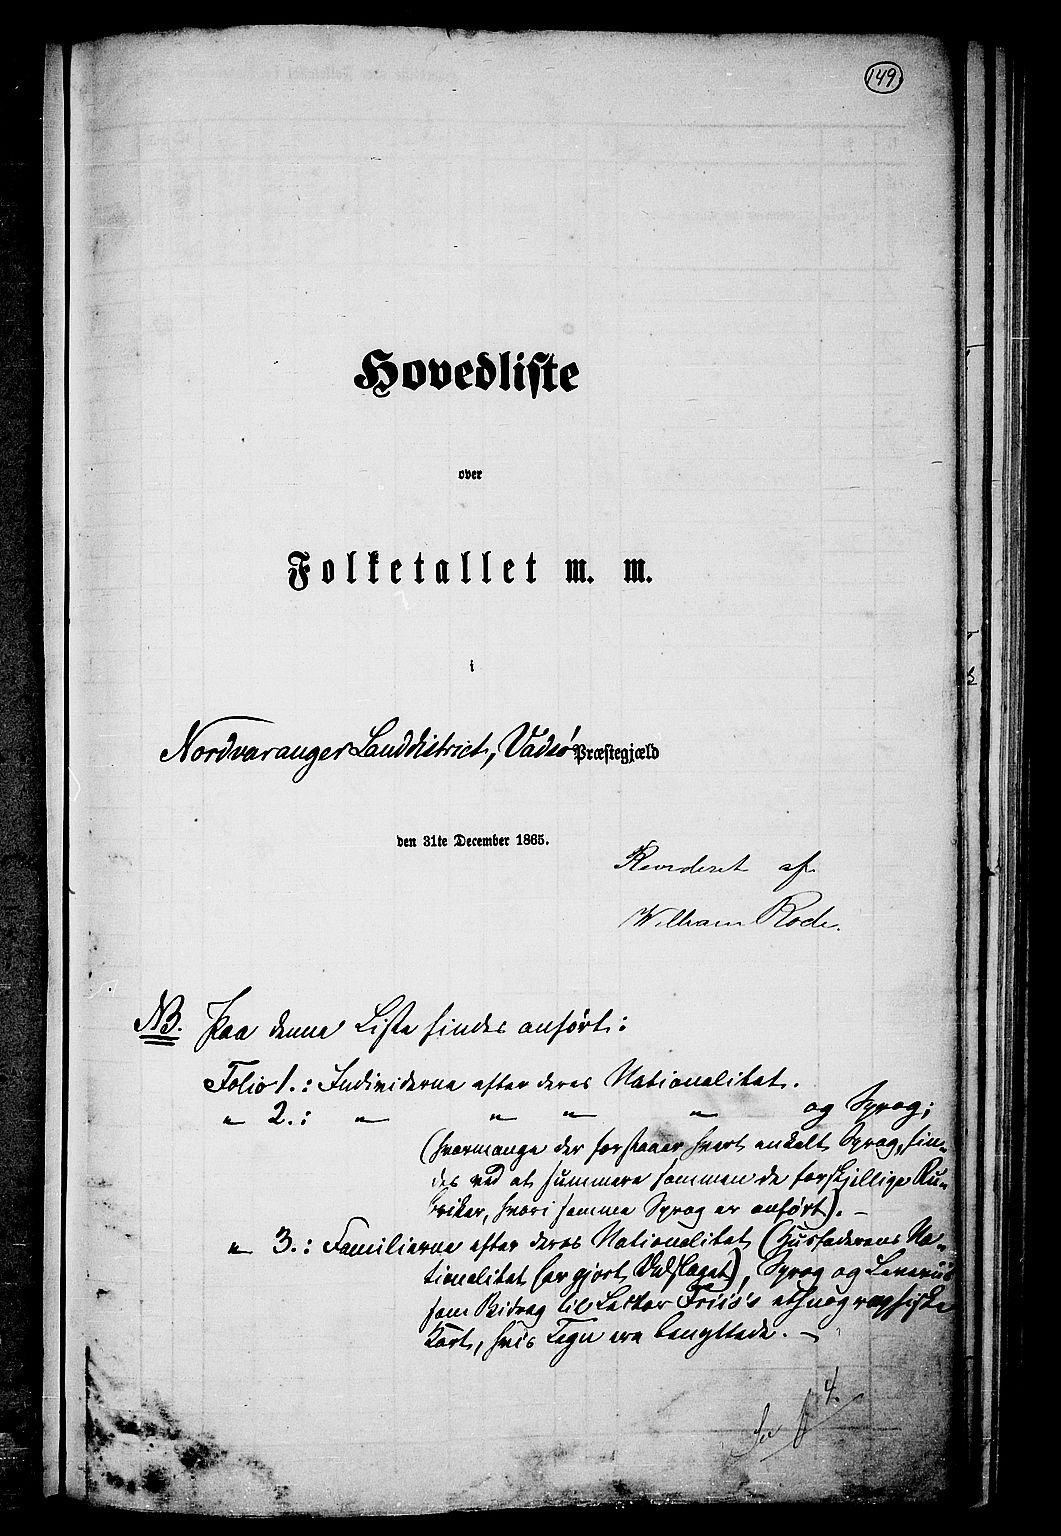 149.
Hovedliste
over
Folketallet m. m.
i
Nordvaranger Landdistrict, Vadsø Præstegjæld
den 31te December 1865.
Revideret af
William Rode.
NB. Paa denne Liste findes anført:
Folio 1.: Individerne efter deres Nationalitet.
" 2.: " " " " og Sprog;
(hvormange der forstaaer hvert enkelt Sprog, fin-
des ved at summere sammen de forskjellige Ru-
briker, hvori samme Sprog er anført). —
" 3.: Familierne efter deres Nationalitet (Husfaderens Na-
tionalitet har gjort Udslaget), Sprog og Levevis
som Bidrag til Lector Friis's ethnographiske
Kart, hvis Tegn ere benyttede. —
4.